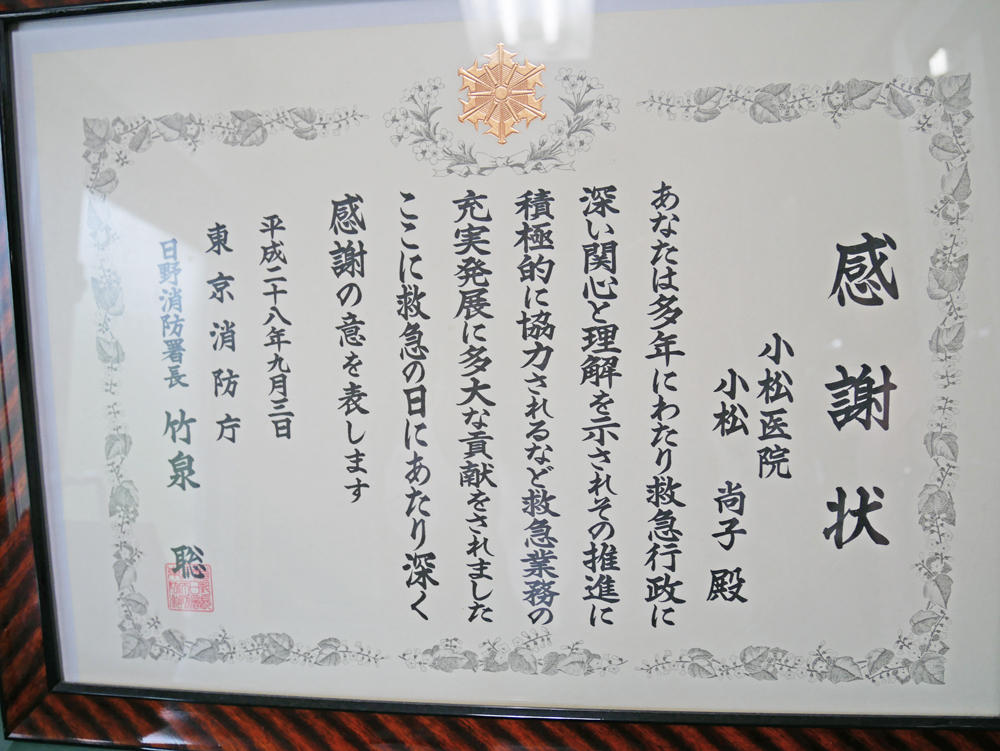 感謝状
小松医院
小松 尚子 殿
あなたは多年にわたり救急行政に
深い関心と理解を示されその推進に
積極的に協力されるなど救急業務の
充実発展に多大な貢献をされました
ここに救急の日にあたり深く
感謝の意を表します
平成二十八年九月三日
東京消防庁
日野消防署長 竹泉 聡